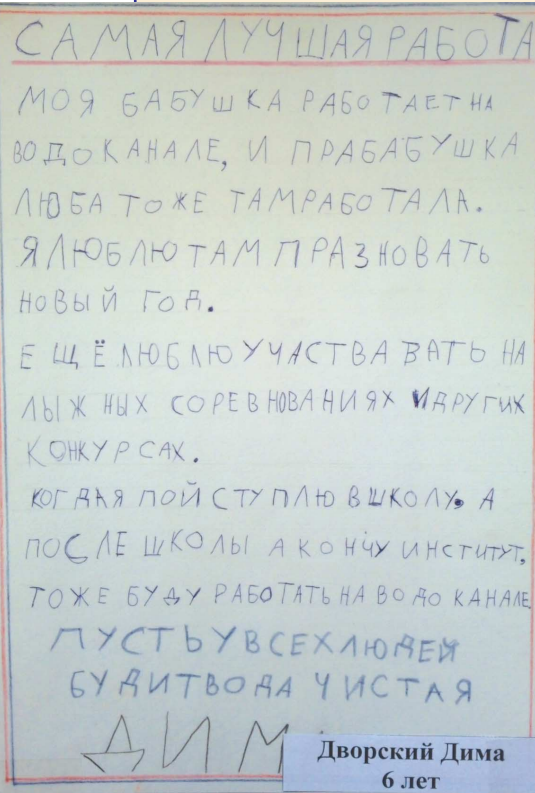 САМАЯ ЛУЧШАЯ РАБОТА
МОЯ БАБУШКА РАБОТАЕТ НА
ВОДОКАНАЛЕ, И ПРАБАБУШКА
ЛЮБА ТОЖЕ ТАМРАБОТАЛА.
Я ЛЮБЛЮ ТАМ ПРАЗНОВАТЬ
НОВЫЙ ГОД.
ЕЩЁ ЛЮБЛЮ УЧАСТВАВАТЬ НА
ЛЫЖНЫХ СОРЕВНОВАНИЯХ И ДРУГИХ
КОНКУРСАХ.
КОГДА Я ПОЙСТУПЛЮ В ШКОЛУ, А
ПОСЛЕ ШКОЛЫ АКОНЧУ ИНСТИТУТ,
ТОЖЕ БУДУ РАБОТАТЬ НА ВОДОКАНАЛЕ.
ПУСТЬ У ВСЕХ ЛЮДЕЙ
БУДИТ ВОДА ЧИСТАЯ
ДИМ
Дворский Дима
6 лет